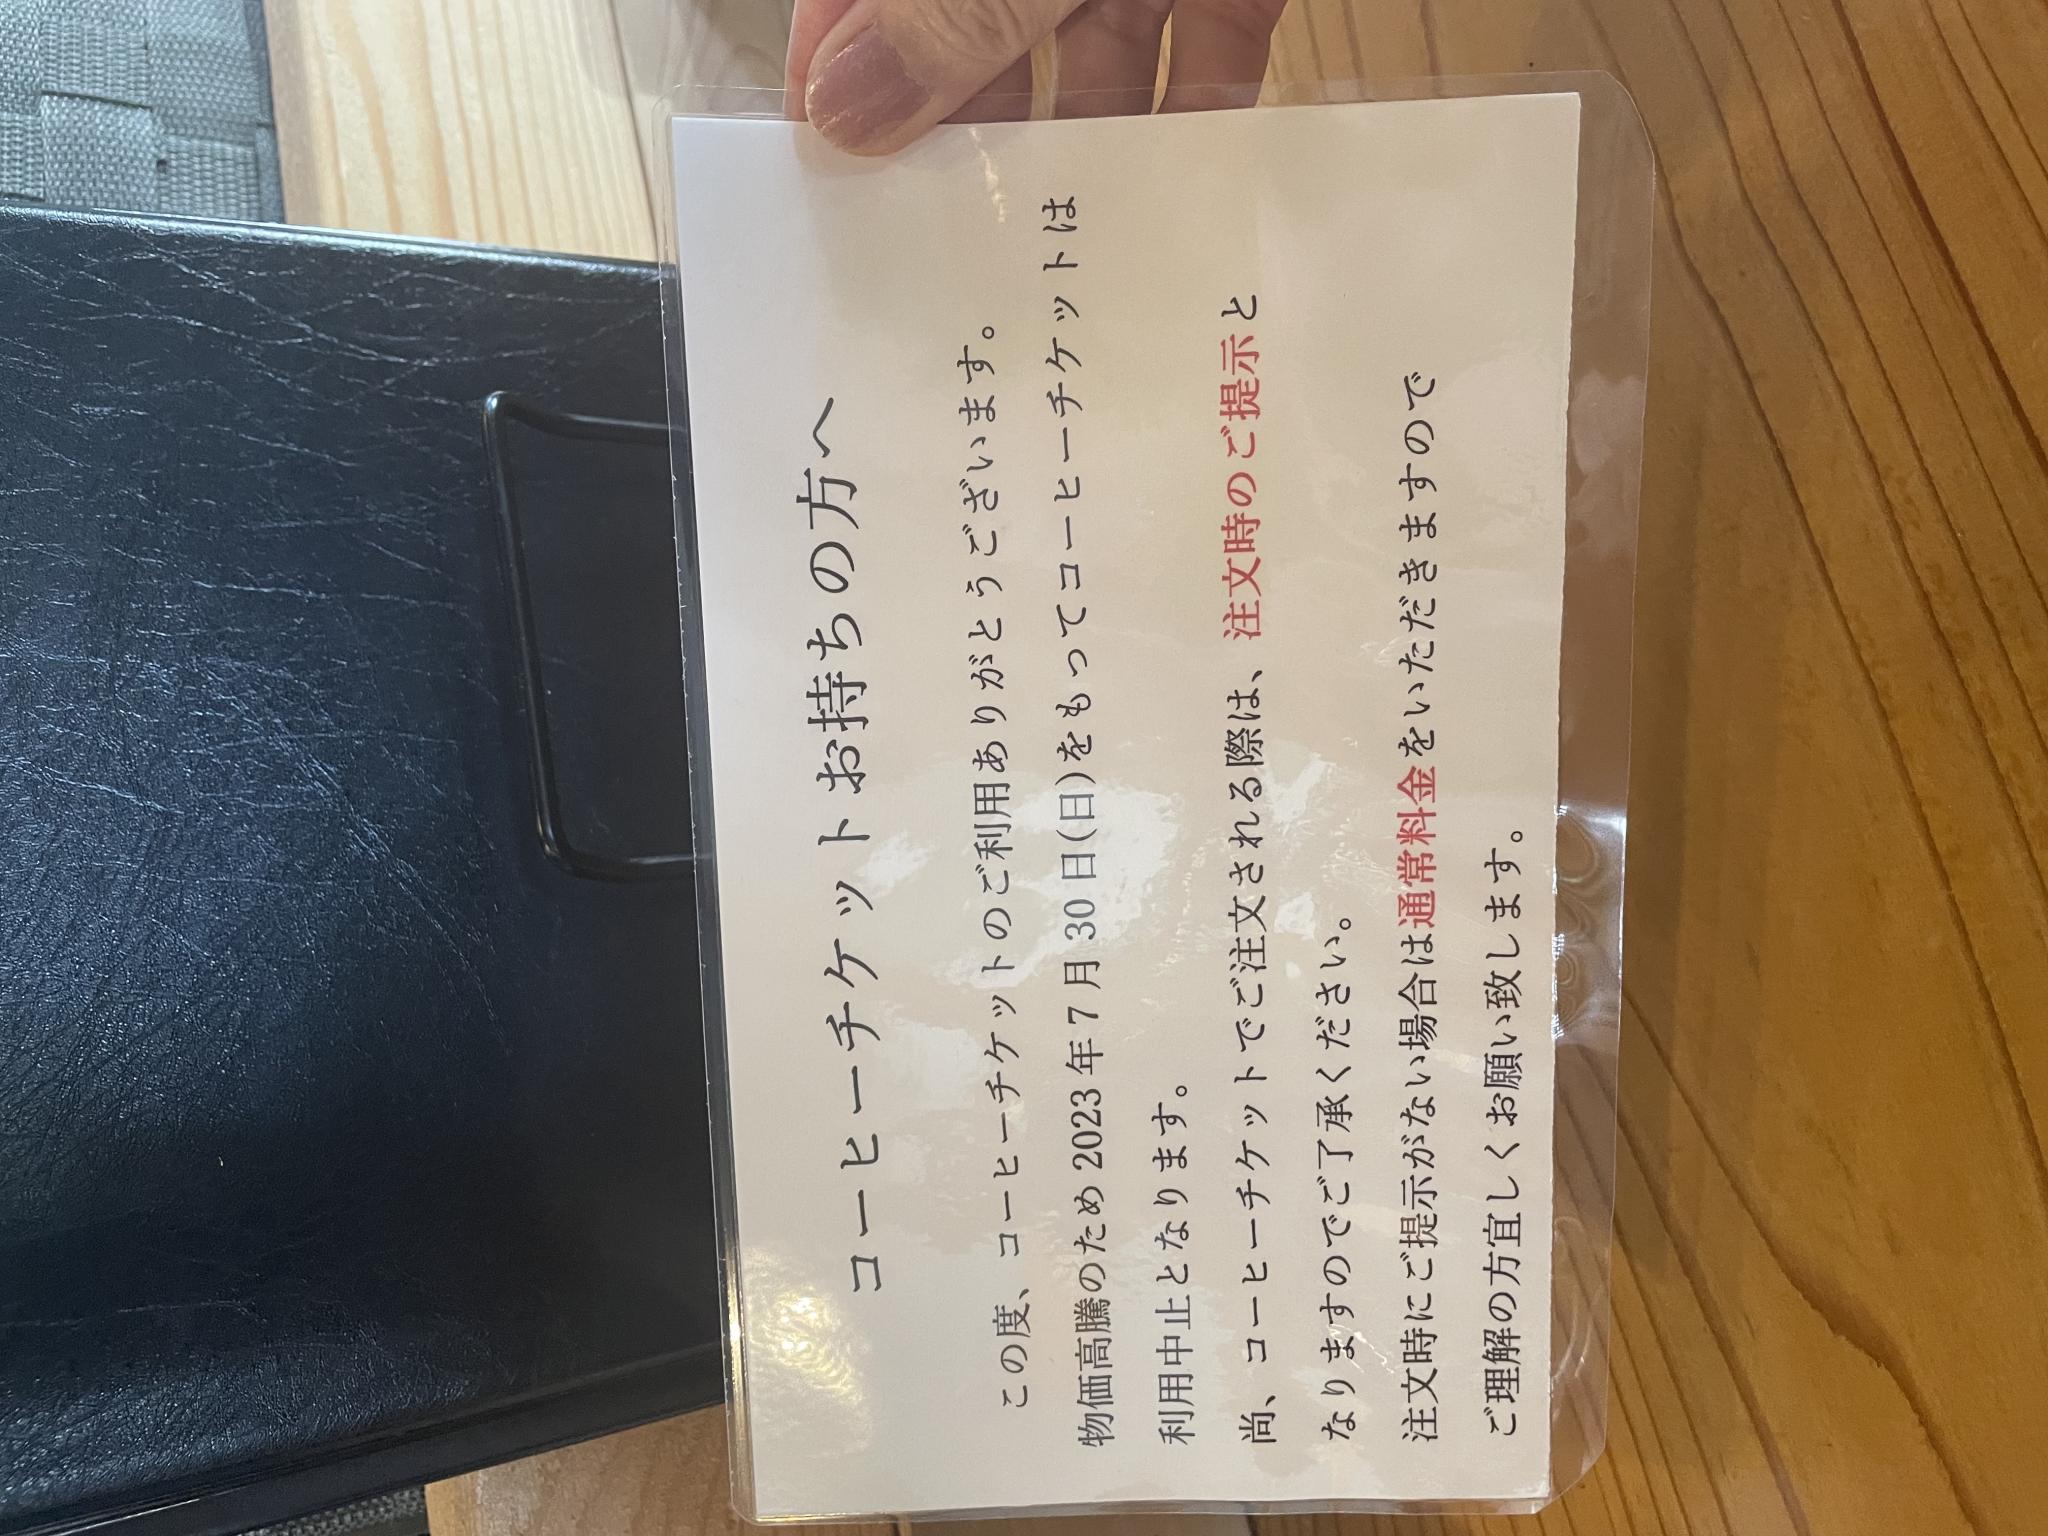 コーヒーチケットお持ちの方へ
この度、コーヒーチケットのご利用ありがとうございます。
物価高騰のため2023年7月30日(日)をもってコーヒーチケットは
利用中止となります。
尚、コーヒーチケットでご注文される際は、注文時のご提示と
なりますのでご了承ください。
注文時にご提示がない場合は通常料金をいただきますので
ご理解の方宜しくお願い致します。